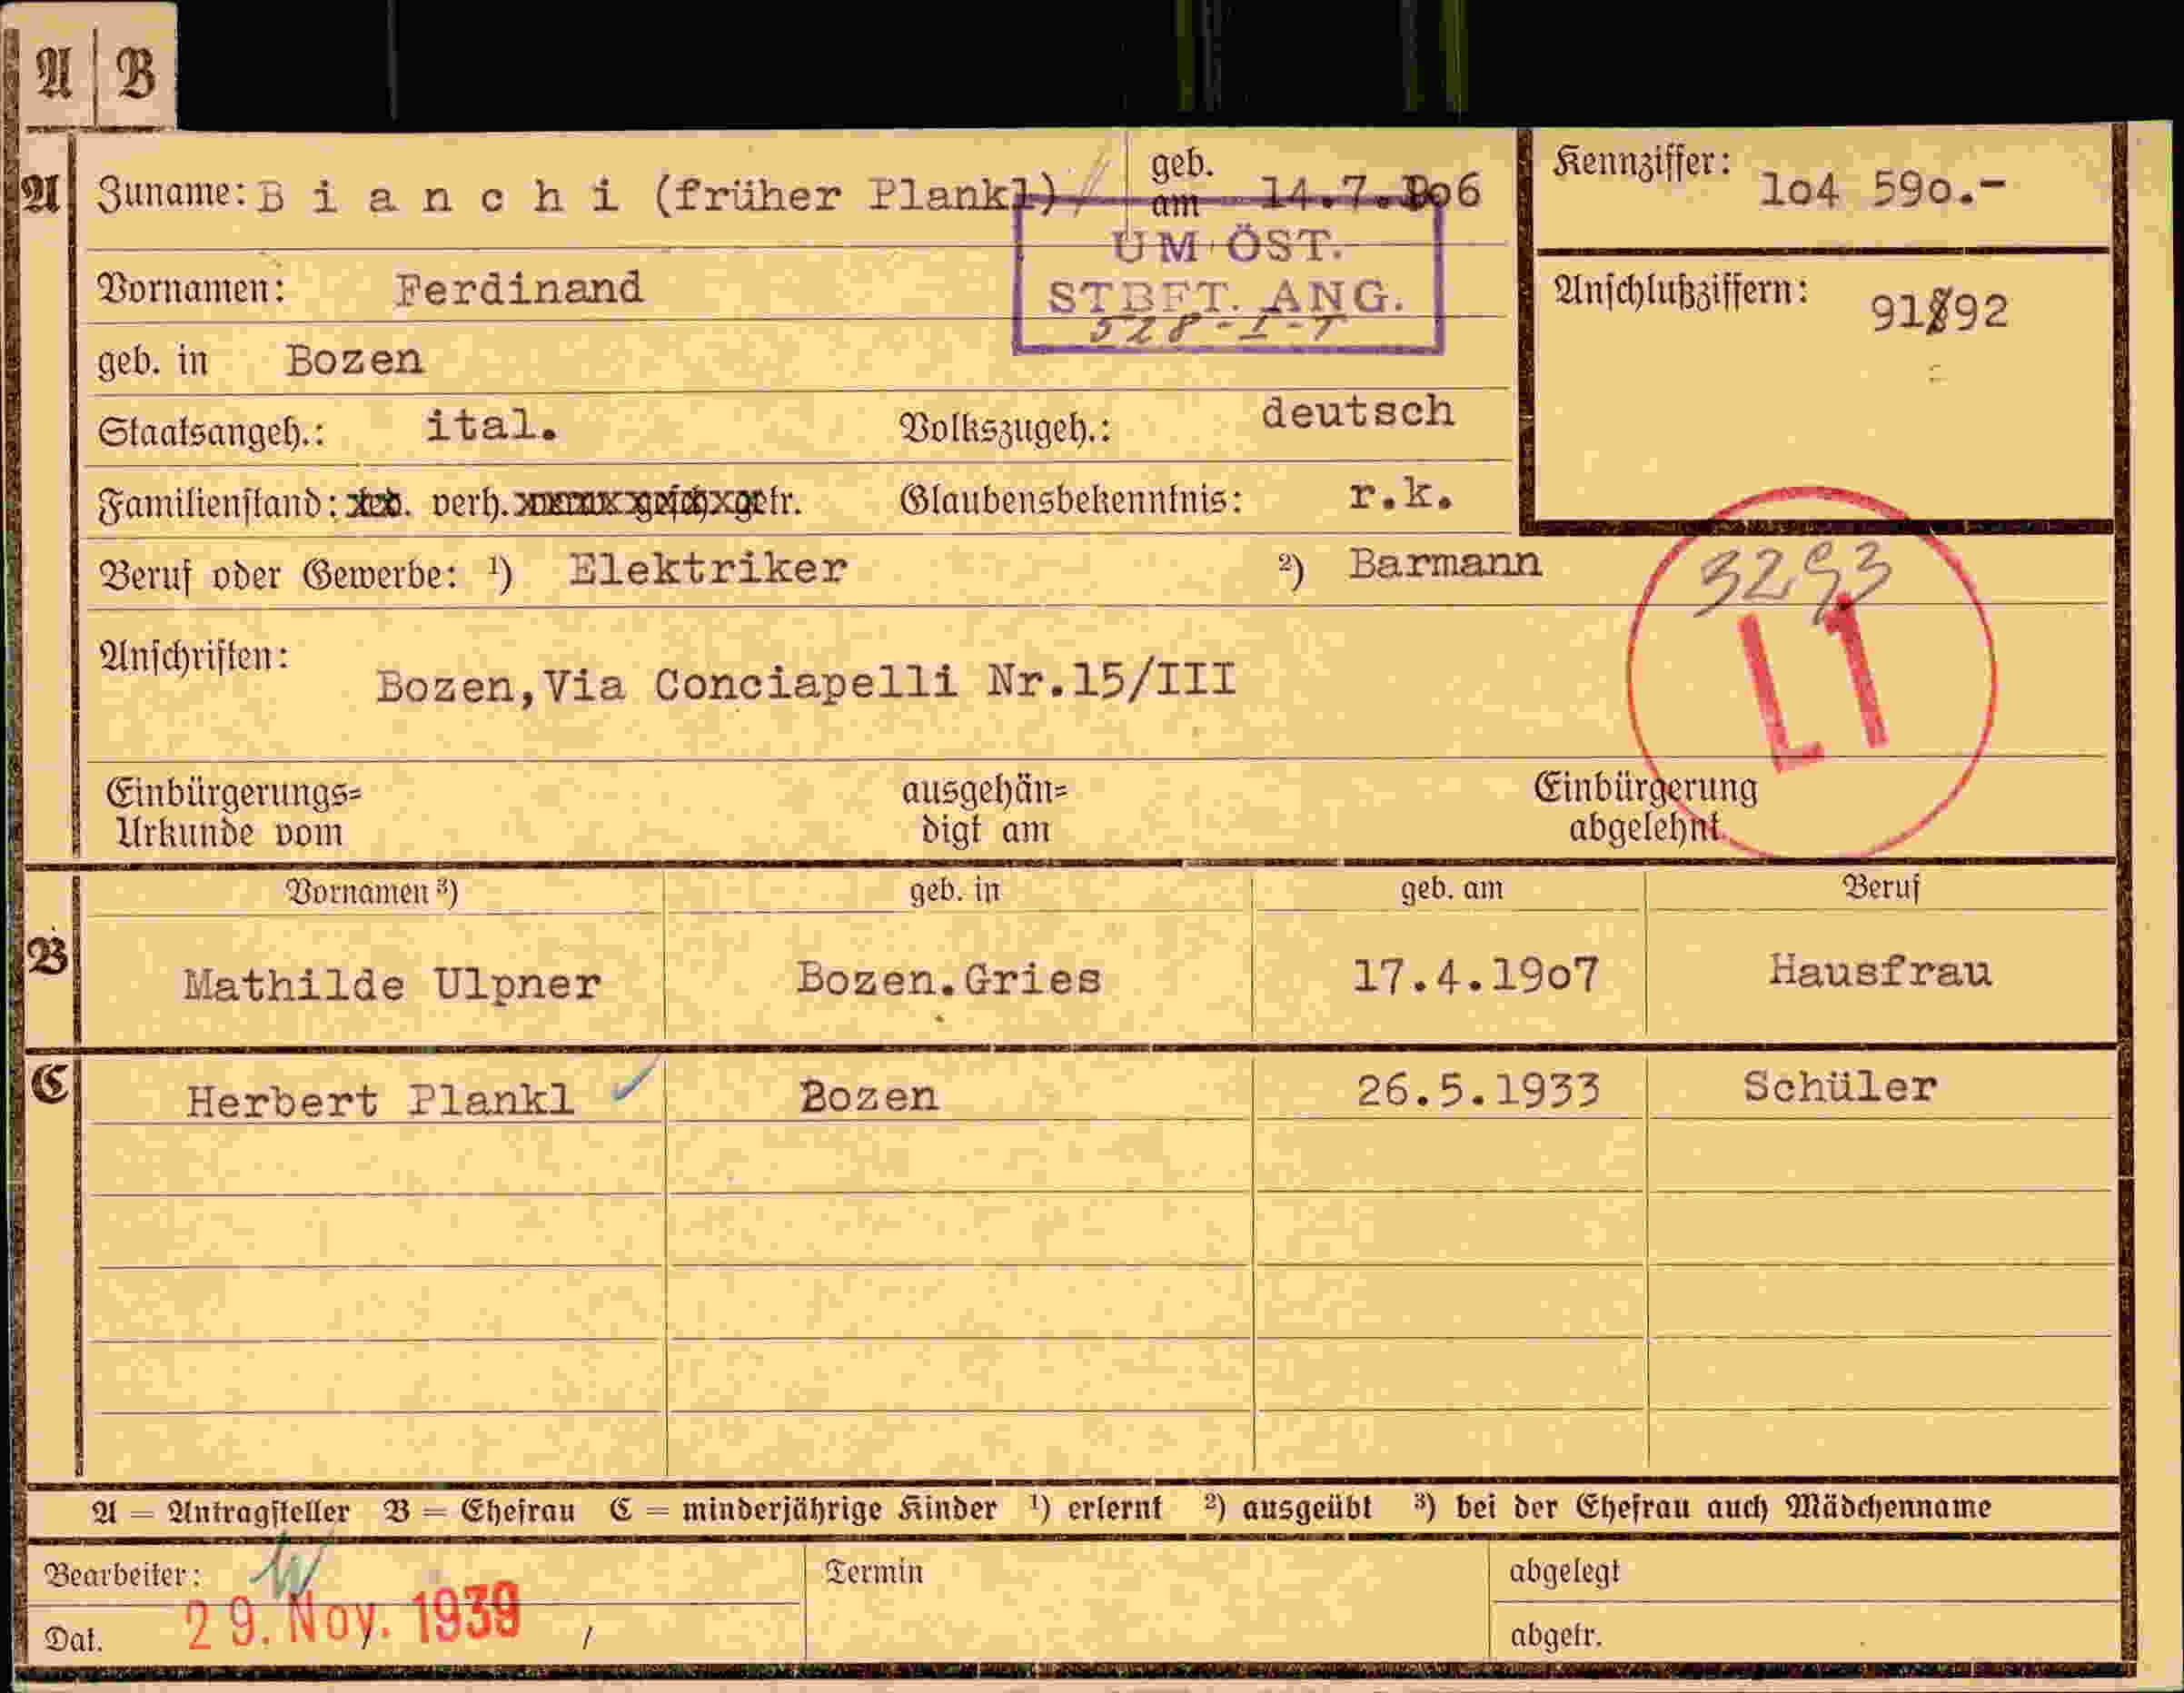 A B
A Zuname: B i a n c h i (früher Plankl) geb. am 14.7.1906
Kennziffer: 1o4 59o.-
UM ÖST.
STBFT. ANG.
Vornamen: Ferdinand
Anschlußziffern: 91892
geb. in Bozen
Staatsangeh.: ital. Volkszugeh.: deutsch
Familienstand: led. verh. verw. gesch. getr. Glaubensbekenntnis: r.k.
Beruf oder Gewerbe: ¹) Elektriker ²) Barmann
3293
L1
Anschriften: Bozen,Via Conciapelli Nr.15/III
Einbürgerungs= Urkunde vom
ausgehän= digt am
Einbürgerung abgelehnt
Vornamen ³) geb. in geb. am Beruf
B Mathilde Ulpner Bozen.Gries 17.4.19o7 Hausfrau
C Herbert Plankl Bozen 26.5.1933 Schüler
A = Antragsteller B = Ehefrau C = minderjährige Kinder ¹) erlernt ²) ausgeübt ³) bei der Ehefrau auch Mädchenname
Bearbeiter: Termin abgelegt
Dat. 29. Nov. 1939 / abgetr.